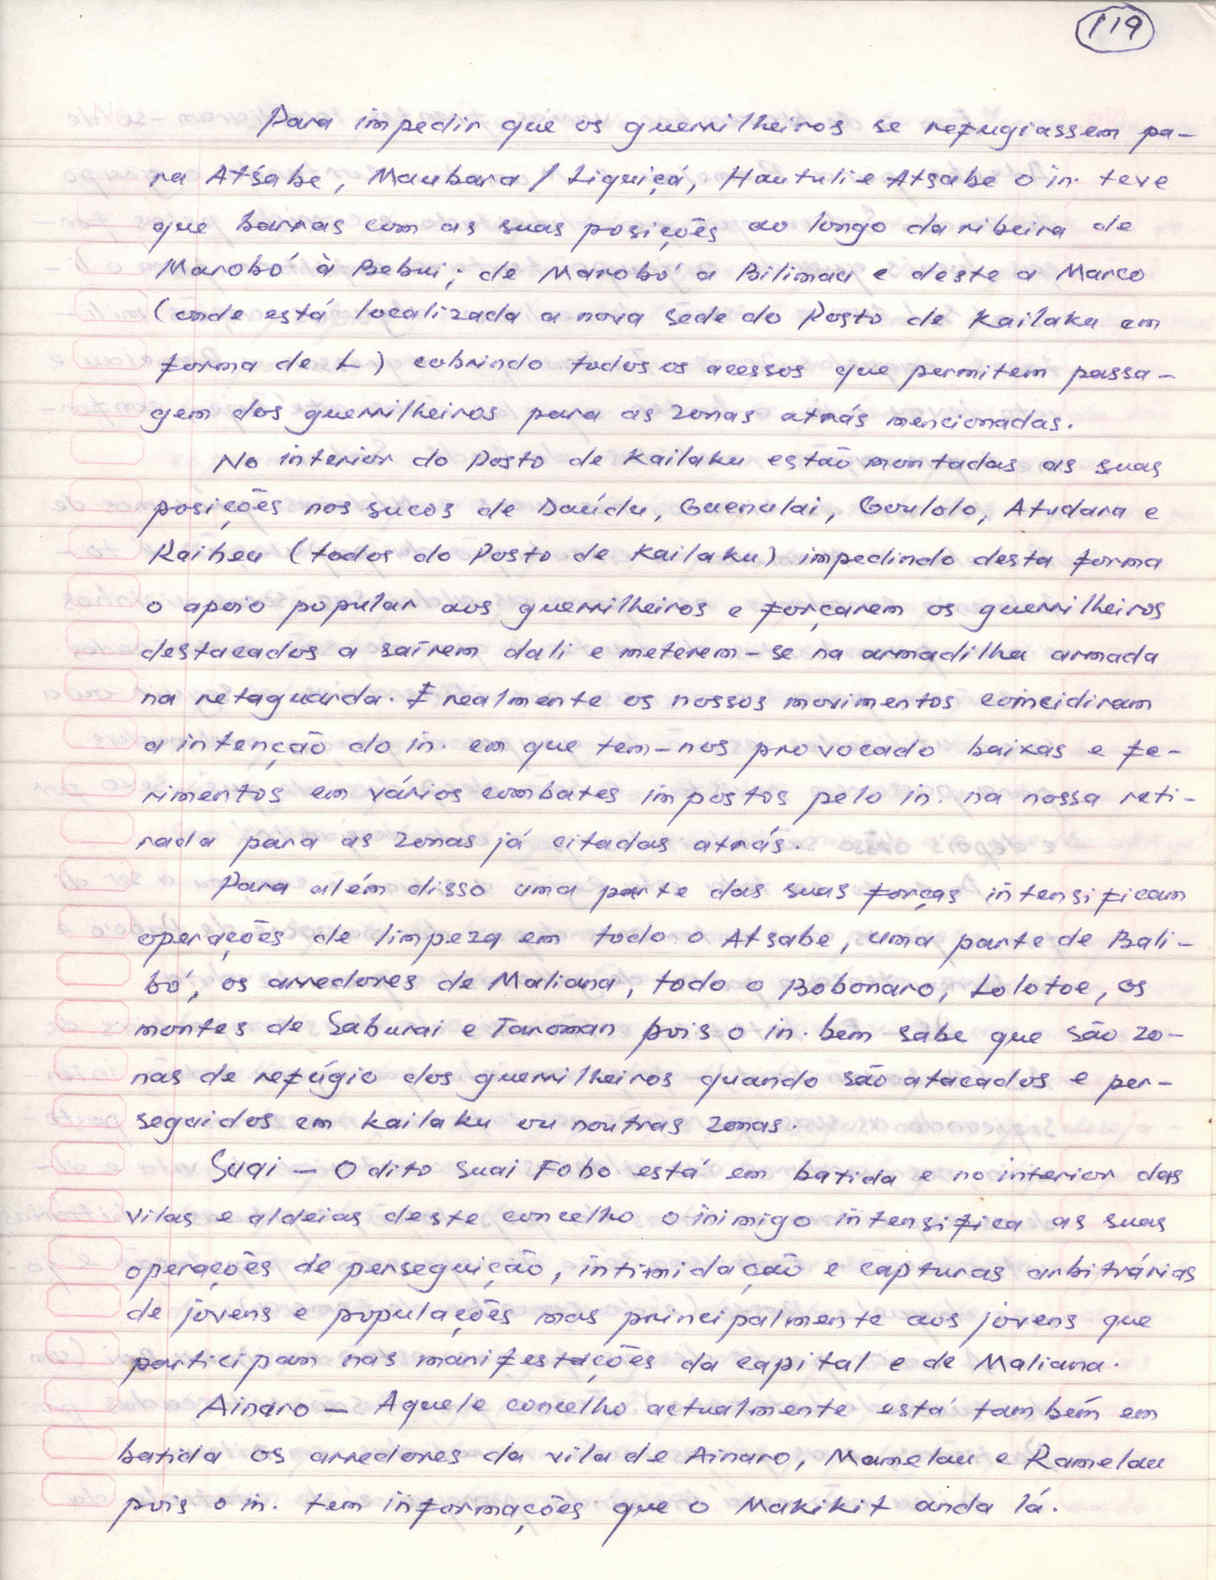 119
Para impedir que os guerrilheiros se refugiassem pa-
ra Atsabe, Maubara / Liquiçá, Hautuli e Atsabe o in. teve
que barras com as suas posições ao longo da ribeira de
Marobó à Bebui; de Marobó a Bilimau e deste a Marco
(onde está localizada a nova sede do Posto de Kailaku em
forma de L) cobrindo todos os acessos que permitem passa-
gem dos guerrilheiros para as zonas atrás mencionadas.
No interior do Posto de Kailaku estão montadas as suas
posições nos sucos de Daúdu, Guenulai, Goulolo, Atudara e
Raiheu (todos do Posto de Kailaku) impedindo desta forma
o apoio popular aos guerrilheiros e forçarem os guerrilheiros
destacados a saírem dali e meterem-se na armadilha armada
na retaguarda. E realmente os nossos movimentos coincidiram
a intenção do in. em que tem-nos provocado baixas e fe-
rimentos em vários combates impostos pelo in. na nossa reti-
rada para as zonas já citadas atrás.
Para além disso uma parte das suas forças intensificam
operações de limpeza em todo o Atsabe, uma parte de Bali-
bó, os arredores de Maliana, todo o Bobonaro, Lolotoe, os
montes de Saburai e Taroman pois o in. bem sabe que são zo-
nas de refúgio dos guerrilheiros quando são atacados e per-
seguidos em Kailaku ou noutras zonas.
Suai - O dito Suai Fobo está em batida e no interior das
vilas e aldeias deste concelho o inimigo intensifica as suas
operações de perseguição, intimidação e capturas arbitrárias
de jovens e populações mas principalmente aos jovens que
participam nas manifestações da capital e de Maliana.
Ainaro - Aquele concelho actualmente está também em
batida os arredores da vila de Ainaro, Mamelau e Ramelau
pois o in. tem informações que o Makikit anda lá.